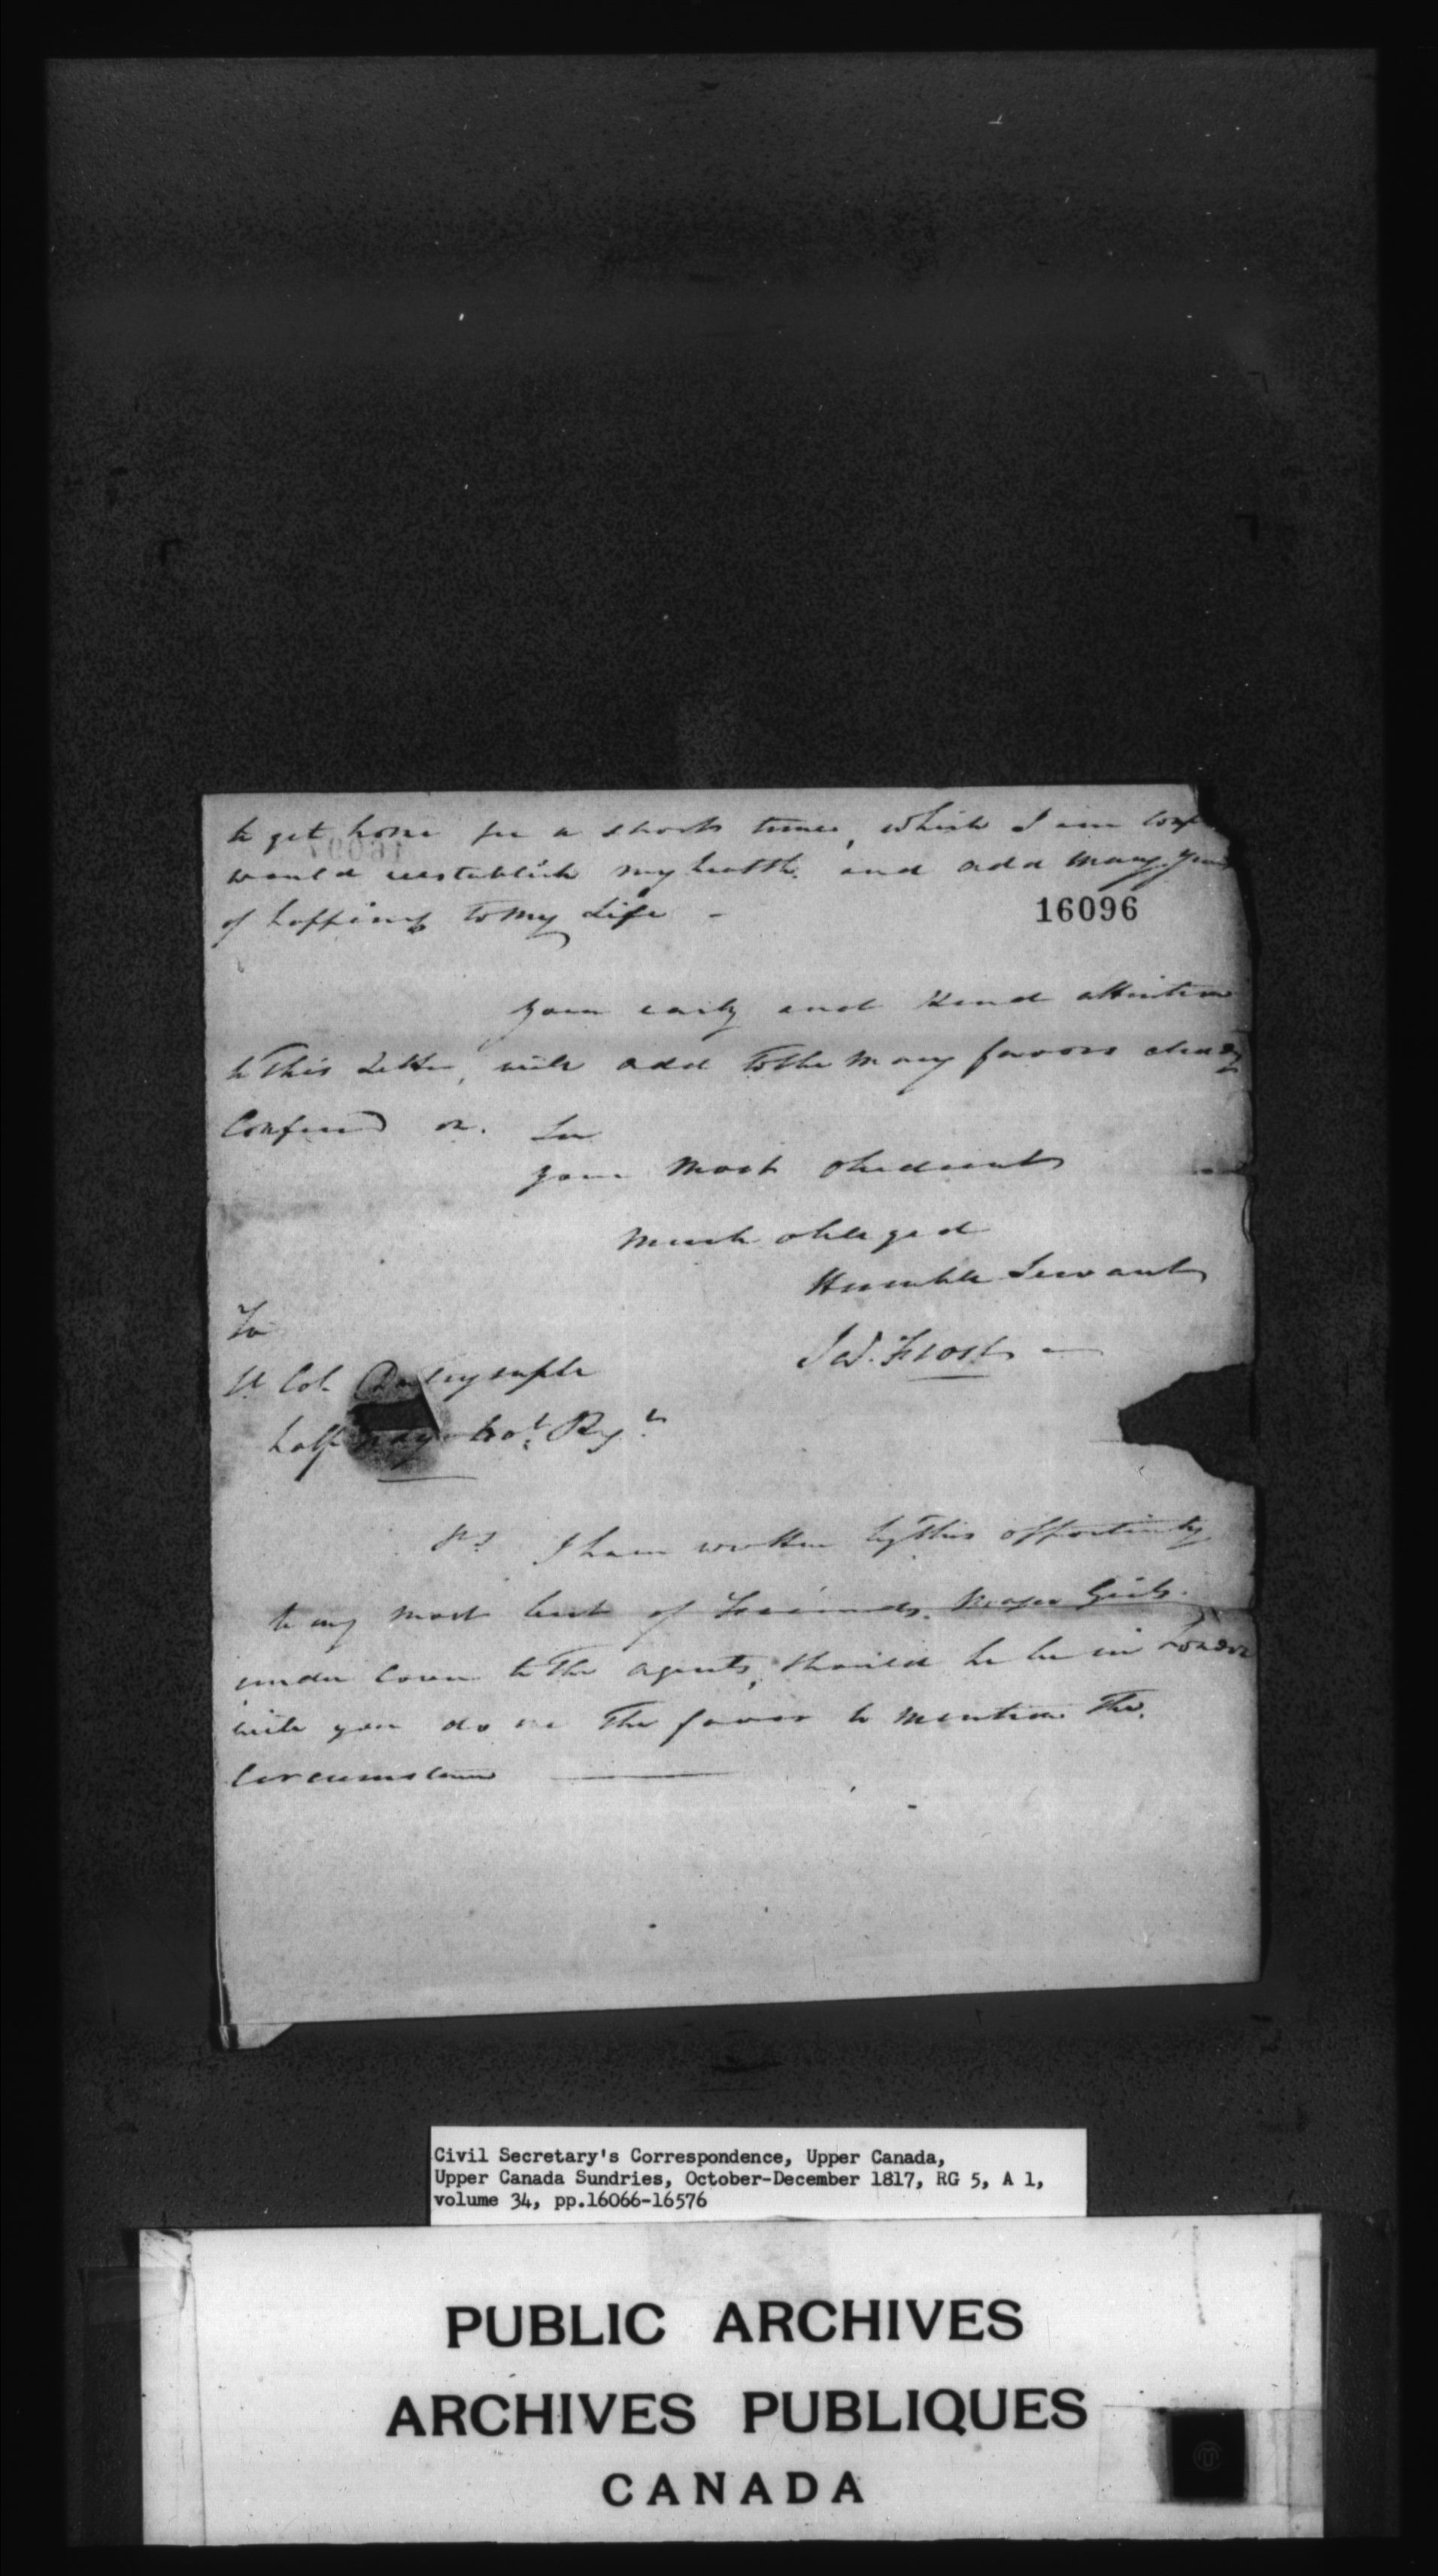 to get home for a short time, which I am
would reestablish my health. and add many years
of happiness to my Life -
16096
your early and kind attention
to this Letter, will add to the many favors already
Conferred on. Sir
your most obedient
much obliged
Humble Servant
J W. Frost -
To
Lt Col
half pay Regt
PS I have written by this opportunity
to my most best of Friends. Major
under cover to the agents, should he be in London
will you do me the favor to mention the.
Circumstance
Civil Secretary's Correspondence, Upper Canada,
Upper Canada Sundries, October-December 1817, RG 5, A 1,
volume 34, pp.16066-16576
PUBLIC ARCHIVES
ARCHIVES PUBLIQUES
CANADA